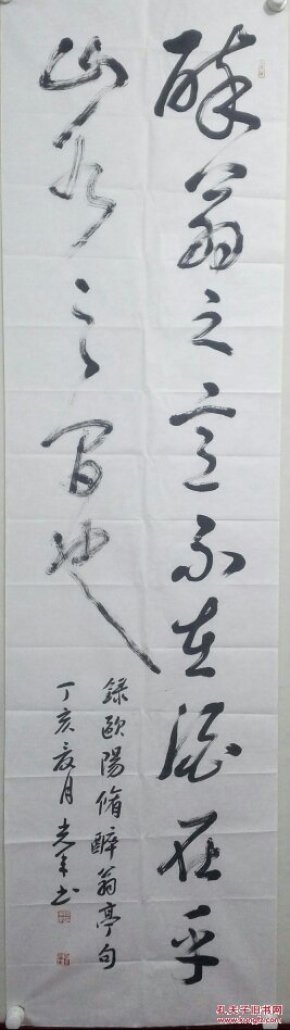 醉翁之意不在酒在乎
山水之間也
録歐陽脩醉翁亭句
丁亥夏月 光年书
孔夫子旧书网
www.kongfz.com